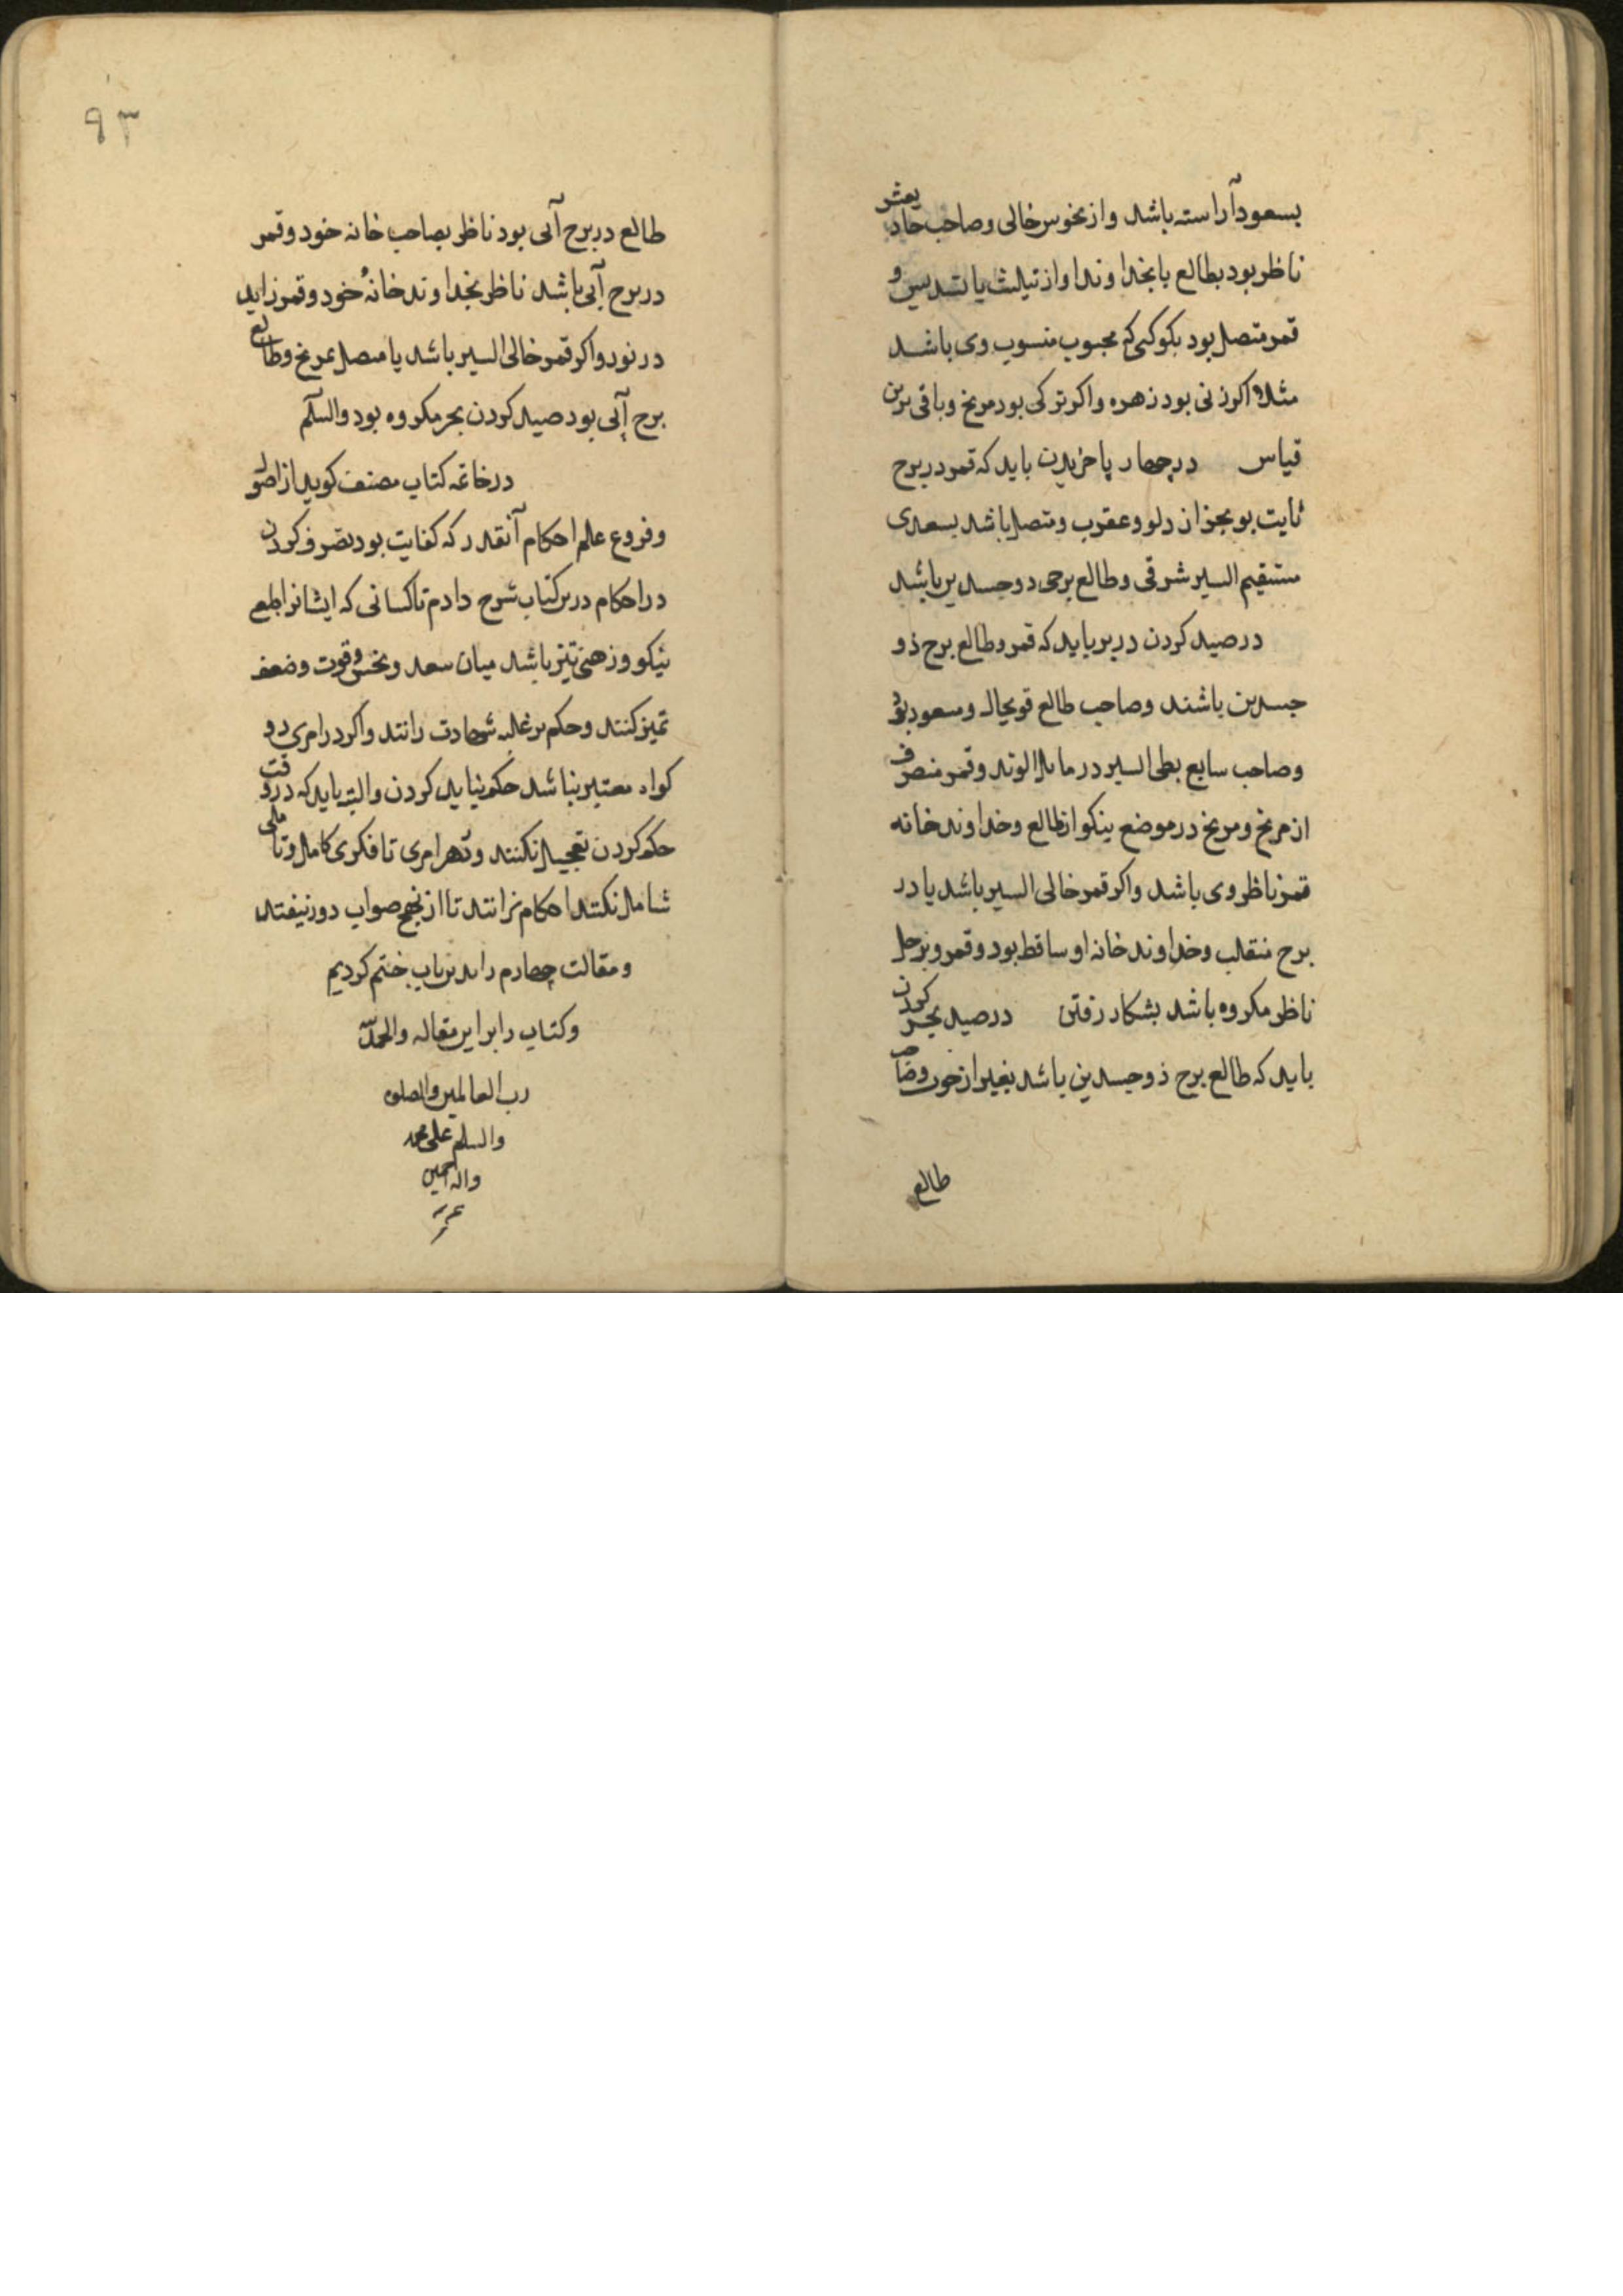 بسعود آراسته باشد و از نحوس خالی و صاحب حادیعشر
ناظر بود بطالع یا بخداوند او از تثلیث یا تسدیس و
قمر متصل بود بکوکبی که محبوب منسوب وی باشد
مثلا اگر زنی بود زهره و اکر ترکی بود مریخ و باقی برین
قیاس در چهار پا خریدن باید که قمر در برج
ثابت بو بجز از دلو و عقرب و متصل باشد بسعدی
مستقیم السیر شرقی و طالع برجی دو جسدین باشد
در صید کردن در بر باید که قمر و طالع برج ذو
جسدین باشند و صاحب طالع قویحال و مسعود بود
و صاحب سابع بطی السیر در مایل الوتد و قمر منصرف
از مریخ و مریخ در موضع نیکو از طالع و خداوند خانه
قمر ناظر وی باشد و اکر قمر خالی السیر باشد یا در
برج منقلب و خداوند خانه او ساقط بود و قمر و بزحل
ناظر مکروه باشد بشکار رفتن در صید بحر کردن
باید که طالع برج ذو جسدین باشد بغیر از حوت و صاحب
طالع
۹۳
طالع در برج آبی بود ناظر بصاحب خانه خود و قمر
در برج آبی باشد ناظر بخداوند خانهٔ خود و قمر زاید
در نور و اکر قمر خالی السیر باشد یا متصل بمریخ و طالع
برج آبی بود صید کردن بحر مکروه بود والسلم
در خاتمه کتاب مصنف کوید از اصول
و فروع علم احکام آنقدر که کفایت بود تصرف کردن
در احکام درین کتاب شرح دادم تا کسانی که ایشانرا طبعی
نیکو و ذهنی تیز باشد میان سعد و نحس و قوت و ضعف
تمیز کنند و حکم بر غلبه شهادت رانند و اکر در امری دو
کواه معتبر نباشد حکم نباید کردن و البته باید که در وقت
حکم کردن تعجیل نکنند و هر امری تا فکری کامل و تاملی
شامل نکنند احکام نرانند تا از نهج صواب دور نیفتند
و مقالت چهارم را بدین باب ختم کردیم
و کتاب را بر این مقاله والحمد لله
رب العالمین والصلوه
والسلم علی محمد
واله اجمعین